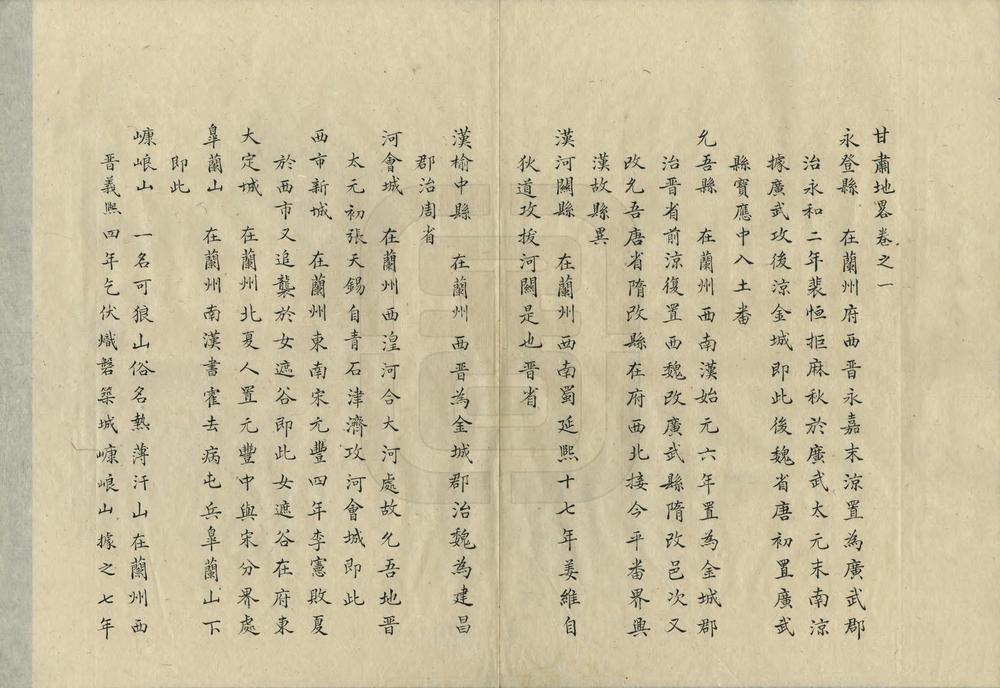 甘肅地畧卷之一
永登縣　在蘭州府西晉永嘉末涼置為廣武郡
治永和二年裴恒拒麻秋於廣武太元末南涼
據廣武攻後涼金城即此後魏省唐初置廣武
縣寶應中入土番
允吾縣　在蘭州西南漢始元六年置為金城郡
治晉省前涼復置西魏改廣武縣隋改邑次又
改允吾唐省隋改縣在府西北接今平番界與
漢故縣異
漢河關縣　在蘭州西南蜀延熙十七年姜維自
狄道攻拔河關是也晉省
漢榆中縣　在蘭州西晉為金城郡治魏為建昌
郡治周省
河會城　在蘭州西湟河合大河處故允吾地晉
太元初張天錫自青石津濟攻河會城即此
西市新城　在蘭州東南宋元豐四年李憲敗夏
於西市又追襲於女遮谷即此女遮谷在府東
大定城　在蘭州北夏人置元豐中與宋分界處
臯蘭山　在蘭州南漢書霍去病屯兵臯蘭山下
即此
㟍㟍山　一名可狼山俗名熱薄汗山在蘭州西
晉義熙四年乞伏熾磐築城㟍㟍山據之七年